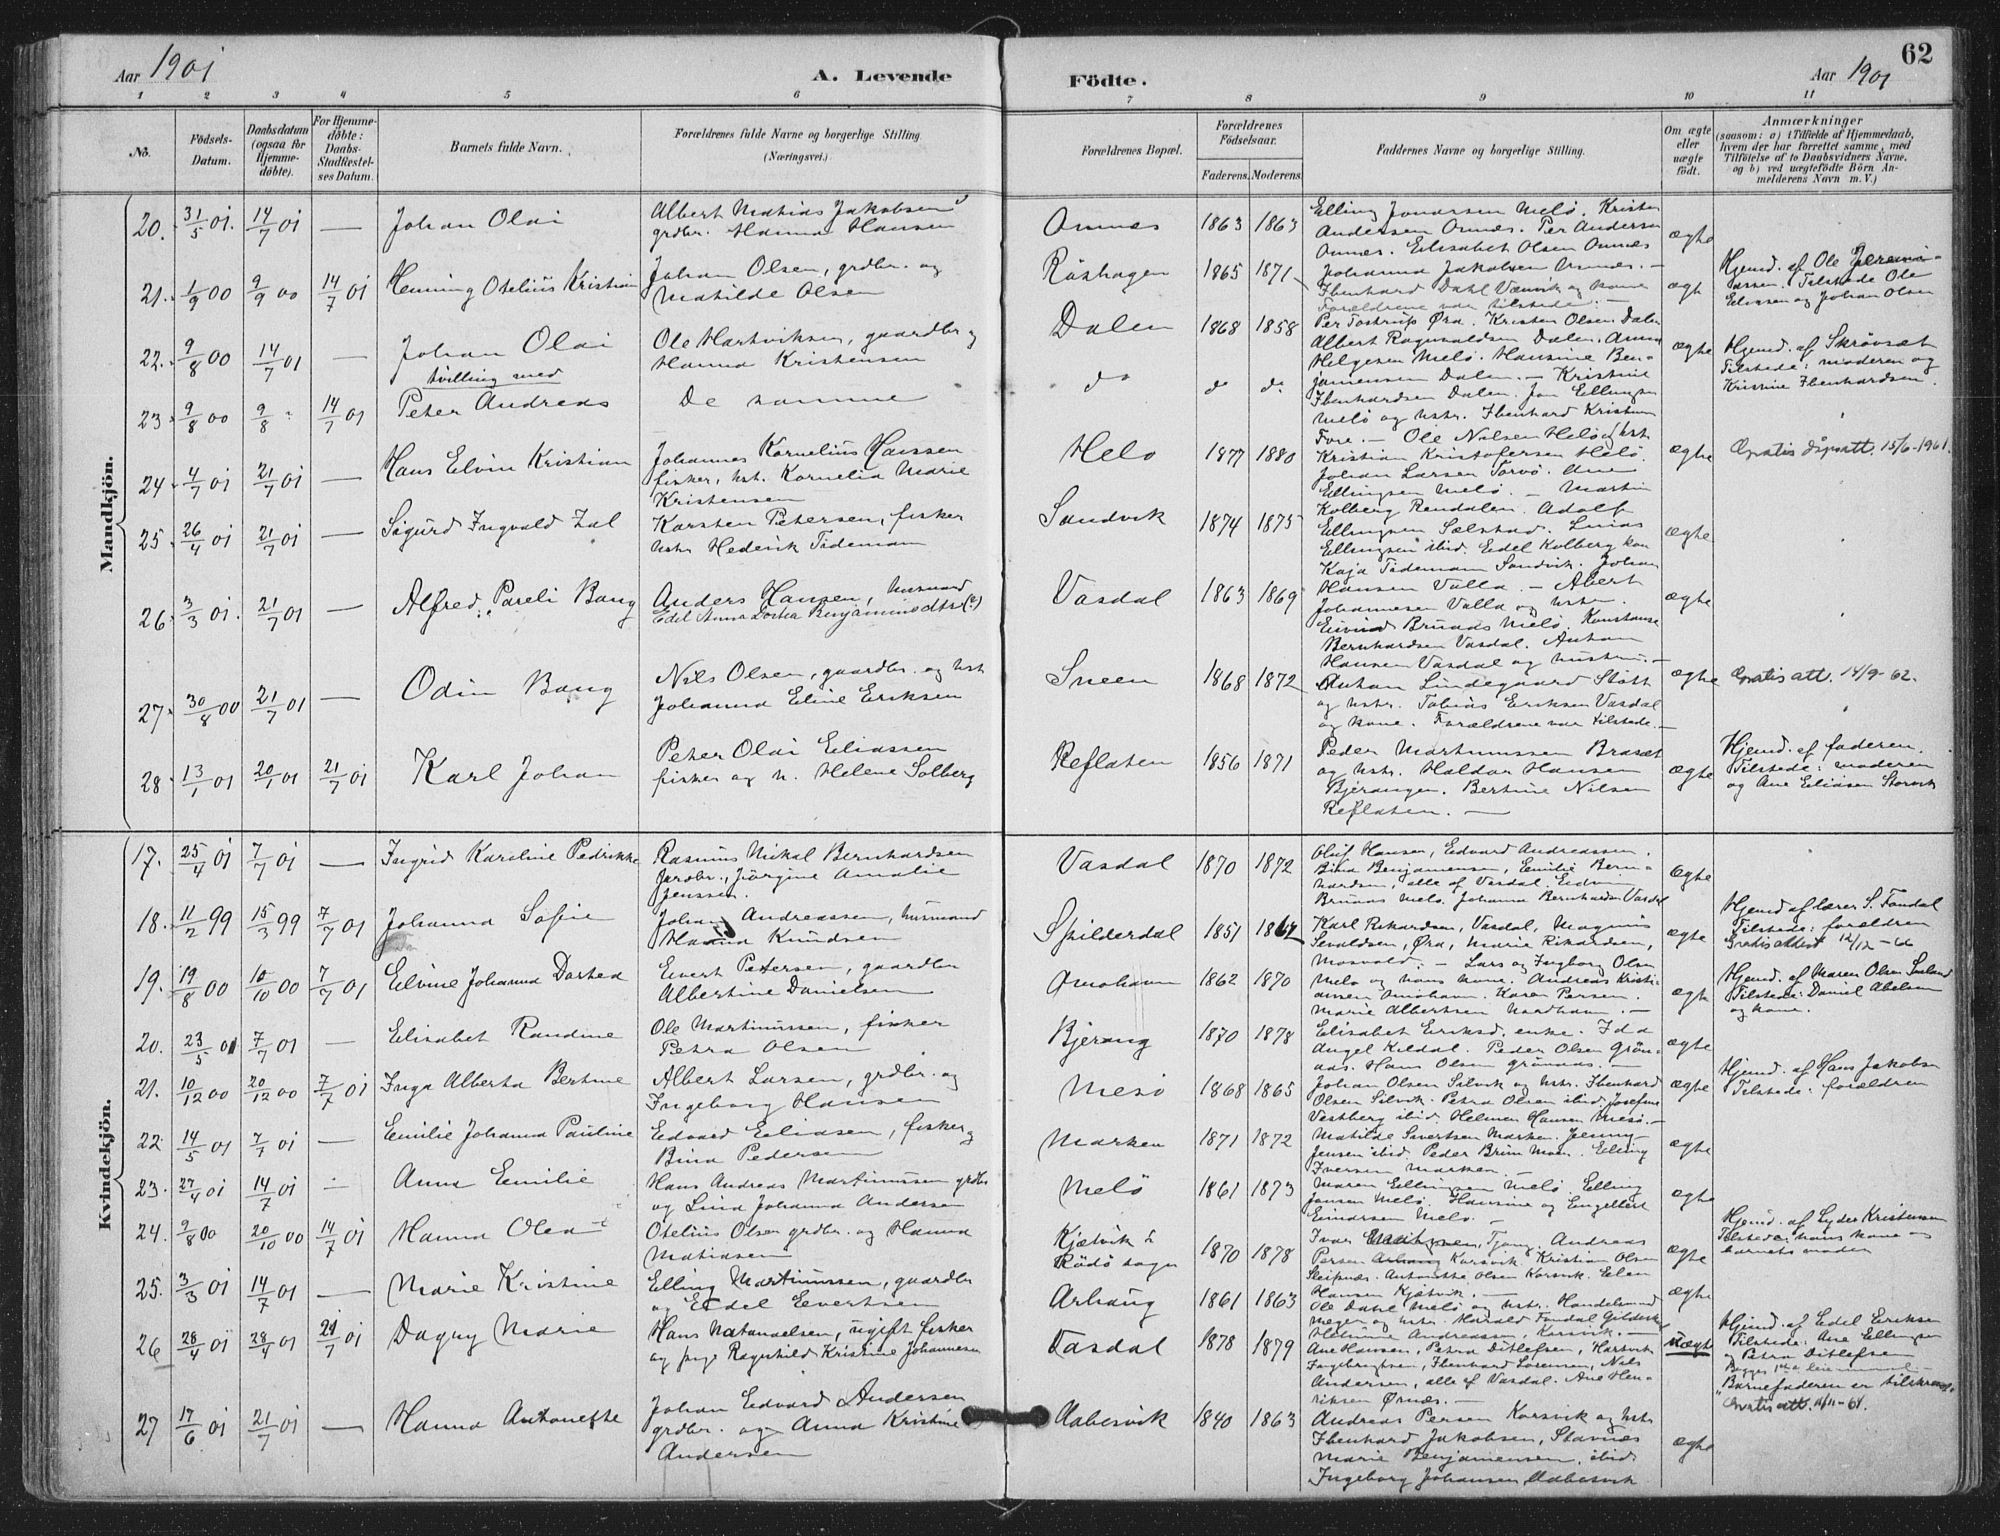 Aar 1901
A. Levende
Födte.
Aar 1901
62
1 2 3 4 5 6 7 8 9 10 11
No.
Födsels-Datum.
Daabsdatum (ogsaa for Hjemme-döbte).
For Hjemme-döbte: Daabs-Stadfæstel-ses Datum.
Barnets fulde Navn.
Forældrenes fulde Navne og borgerlige Stilling.
(Næringsvei.)
Forældrenes Bopæl.
Forældrenes Födselsaar.
Faderens. Moderens.
Faddernes Navne og borgerlige Stilling.
Om ægte eller uægte födt.
Anmærkninger
(saasom: a) i Tilfælde af Hjemmedaab,
hvem der har forrettet samme, med
Tilföielse af to Daabsvidners Navne,
og b) ved uægtefödte Börn An-
melderens Navn m. V.)
Mandkjön.
20. 31/5 01. 14/7 01 — Johan Olai
Albert Mathias Jakobsen
grdbr. Hanna Hansen
Onnes 1863 1863
Elling Jonassen Melö. Kristen
Andersen Onnes. Per Andersen
Onnes. Elisabet Olsen Onnes
Johanna Jakobsen Onnes. —
ægte
21. 1/9 00 9/9 00 14/7 01 Henning Otelius Kristian
Johan Olsen, grdbr. og
Matilde Olsen
Röshagen 1865 1871
Ebenhard Dahl Værvik og kone
Forældrene var tilstede. —
ægt
Hjemd. af Ole Jeremi-
assen. Tilstede Ole
Eliasen og Johan Olsen
22. 9/8 00 14/7 01 — Johan Olai
tvilling med
Ole Hartviksen, gaardbr. og
Hanna Kristensen
Dalen 1868 1858
Per Tostrup Øra. Kristen Olsen Dalen
Albert Ragnvaldsen Dalen. Anna
Helgesen Melö. Hansine Ben-
jamensen Dalen. — Kristine
ægte
Hjemd. af Skrövset
Tilstede: moderen og
Kristine Ebenhardsen.
23 9/8 00 9/8 " 14/7 01 Peter Andreas
De samme
do do do
Ebenhardsen Dalen. Jon Ellingsen
Melö og hstr. Ebenhard Kristian
Fore. — Ole Nilsen Helö og hst.
24 4/7 01 21/7 01 — Hans Elvin Kristian
Johannes Kornelius Hanssen
fisker, hst. Kornelia Marie
Kristensen
Helo 1877 1880
Kristian Kristofersen Helö.
Johan Larsen Torvö. Ane
Ellingsen Melö. — Martin
ægte
Gratis dåpsatt. 15/6-1961.
25 26/4 01 21/7 01 — Sigurd Ingvald Zal
Karsten Petersen, fisker
hstr Hedevik Tideman
Sandvik 1874 1875
Kolberg Rendalen. Adolf
Ellingsen Sælstad. Linas
Ellingsen ibid. Edel Kolberg kon
Kaja Tideman Sandvik. Johan
ægte
26 3/3 01. 21/7 01 — Alfred Pareli Bang
Anders Hansen, husmand
Edel Anna Dortea Benjaminsdtr (?)
Vasdal 1863 1869
Hansen Valla. — Albert
Johannesen Valla og hstr.
Eivind Bruaas Melö. Konstanse
Bernhardsen Vasdal. Anton
Hansen Vasdal og hustru. —
ægte
27 30/8 00 21/7 01 — Odin Bang
Nils Olsen, gaardbr. og hst.
Johanna Eline Eriksen
Sneen 1868 1872
Anton Lindegaard Stött
og hstr. Tobias Eriksen Vasdal
og kone. Forældrene var tilstede. —
ægte
Gratis att. 14/9-62.
28 13/1 01 20/1 01 21/7 01 Karl Johan
Peter Olai Eliassen
fisker og h. Helene Solberg
Reflaten 1856 1871
Peder Martinussen Brasæt
og hstr. Haldor Hansen
Bjerangen. Bertine Nilsen
Reflaten. —
ægte
Hjemd. af faderen.
Tilstede: moderen
og Ane Eliasen Storvik
Kvindekjön.
17. 25/4 01 7/7 01 — Ingrid Karoline Pedrikke
Rasmus Mikal Bernhardsen
Jordbr., Jörgine Amalie
Jenssen.
Vasdal 1870 1872
Oluf Hansen, Edvard Andreassen.
Bina Benjamensen, Emilie Bern-
hardsen, alle af Vasdal. Edvin
Bruaas Melö. Johanna Bernhardsen Vasdal
Ægte
18. 11/2 99 15/3 99 7/7 01 Johanna Sofie
Johan Andreassen, husmand
Hanna Knudsen
Spilderdal 1851 1864
Karl Rikardsen, Vasdal, Magnus
Sevaldsen, Øra, Marie Rikardsen,
Mosvold. — Lars og Ingborg Olsen
ægte
Hjemd af lærer S. Fondal
Tilstede: forældren
Gratis attest 12/12-66
19. 19/8 00 10/10 00 7/7 01 Elvine Johanna Dortea
Evert Petersen, gaardbr
Albertine Danielsen
Amohamn 1862 1870
Melö og hans kone. Andreas Kristi-
ansen Amohavn. Karen Persen.
Marie Albertsen Nordhavn. —
ægt
Hjemd. af Maren Olsen
Tilstede: Daniel Abelsen
og kone.
20. 23/5 01 7/7 01 — Elisabet Randine
Ole Martinussen, fisker
Petra Olsen
Bjerang 1870 1878
Elisabet Eriksd. enke. Ida
Angel Kildal. Peder Olsen Grön-
aas. Hans Olsen grönaas. —
ægte
21. 10/12 00 20/12 00 7/7 01 Inga Alberta Bertine
Albert Larsen, grdbr. og
Ingeborg Hansen
Mesö 1868 1865
Johan Olsen Selvik og hstr. Ebenhard
Olsen Silvik. Petra Olsen ibid. Josefine
Vestberg ibid. Helmer Hansen Mesö. —
ægte
Hjemd. af Hans Jakobs
Tilstede: forældren
22 14/5 01 7/7 01 — Emilie Johanna Pauline
Edvard Eliasen, fisker og
Bina Pedersen
Marken 1871 1872
Matilde Sivertsen Marken. Jenny
Jensen ibid. Peder Brun Moen. Elling
Iversen Marken.
ægte
23. 27/4 01 14/7 01 — Anna Emilie
Hans Andreas Martinussen grdbr
og Lina Johanna Andersen
Melö 1861 1873
Maren Ellingsen Melö Elling
Jonsen Melö, Hansine og Engelbert
Einarsen Melö. —
ægte
24. 9/8 00 20/10 00 14/7 01 Hanna Olea
Otelius Olsen grdbr. og Hanna
Matiasen
Kjætvik i
Rödö sogn 1870 1878
Ivar Tjong Andreas
Persen Korsvik. Kristian Olsen
Sleipnæs. Antonette Olsen Korsvik. Elen
Hansen Kjætvik. —
ægte
Hjemd. af Lyder Kristensen
Tilstede: hans kone og
barnets moder
25. 3/3 01 14/7 01 — Marie Kristine
Elling Martinussen, gaardbr
og Edel Evertsen
Arhaug 1861 1863
Ole Dahl Melö og hstr. Handelsmand
Meyer og hstr. Harald Fondal Gildeskål
Andreassen, Korsvik. —
ægte
26 28/4 01 28/4 01 21/7 01 Dagny Marie
Hans Natanaelsen, ugift fisker
og pige Ragnhild Kristine Johannesen
Vasdal 1878 1879
Ane Hansen, Petra Ditlefsen, Hartvik
Ingebrigtsen, Ebenhard Sörensen, Nils
Andersen, alle af Vasdal. Ane Hen-
riksen Ørnæs. —
uægte
Hjemd. af Edel Eriksen
Tilstede: Ane Ellingsen
og Petra Ditlefsen
"Barnefaderen er
Gratis att. 11/11-68.
27 17/6 01 21/7 01 — Hanna Antonette
Johan Edvard Andersen
grdbr. og Anna Kristine
Andersen
Aabesvik 1840 1863
Andreas Persen Korsvik og hstr.
Ebenhard Jakobsen, Stavnæs
Marie Benjamensen, ibid.
Ingeborg Johansen, Aabesvik
ægte